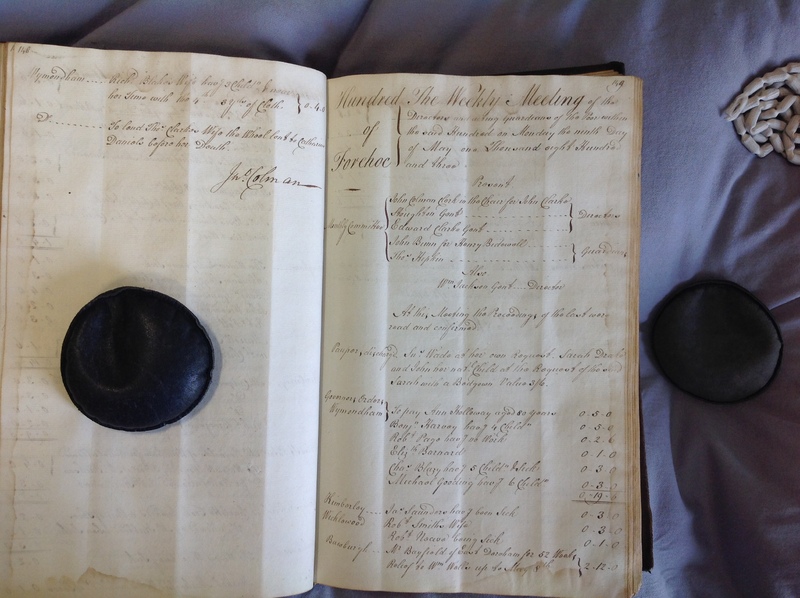 148
Wymondham .... Richd. Blakes Wife havg 3 Childn & near
her Time with no 4th 10 yds of Cloth. } 0.4.0
Do. ....... To lend Thos. Clarkes Wife the Wheel lent to Catharine
Daniels before her Death.
Jno. Colman
149
Hundred
of
Forehoe
The Weekly Meeting of the
Directors and Acting Guardians of the Poor within
the said Hundred on Monday the ninth Day
of May one Thousand eight Hundred
and three
Present
Weekly Committee
John Colman Clerk in the Chair for John Clarke
Houghton Gent ............
Edward Clarke Gent ............ } Directors
John Binn for Henry
Thos. ............ } Guardians
Also
Wm. Jackson Gent .... Director
At this Meeting the Proceedings of the last were
read and confirmed
Paupers discharged Jno. Wade at her own Request. Sarah
and John her nat. Child at the Request of the said
Sarah with a Bedgown Value 3/6.
Orders
Wymondham } To pay Ann Holloway aged 80 years 0-5-0
Benjn. havg 4 Childn 0-5-0
Robt. Page havg no Work 0-2-6
Elizth Barnard 0-1-0
Chas. havg 5 Childn & Sick 0-3-0
Michael Gooding havg 6 Childn 0-3-0
0-19-6
Kimberley .... Jas. Saunders havg been Sick 0-3-0
Wicklewood Robt. Smiths Wife 0-3-0
Robt. being Sick 0-1-0
.... Mr. Bayfield of East Dereham for 52 Weeks
Relief to Wm. Wells up to } 2-12-0